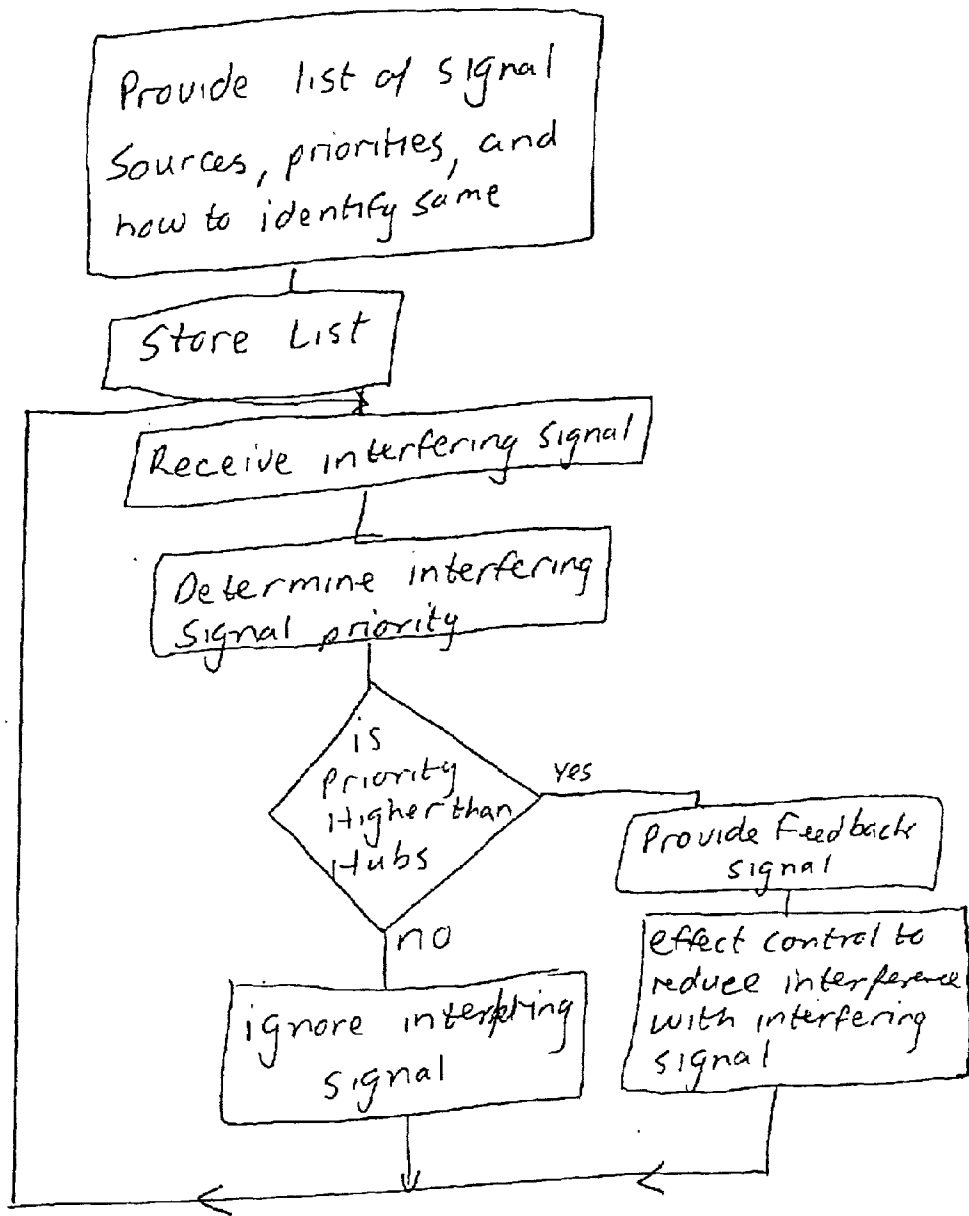 Provide list of signal
Sources, priorities, and
how to identify same
Store List
Receive interfering signal
Determine interfering
Signal priority
is
Priority
Higher than
Hubs
yes
Provide Feedback
signal
effect control to
reduce interference
with interfering
signal
no
ignore interfering
signal